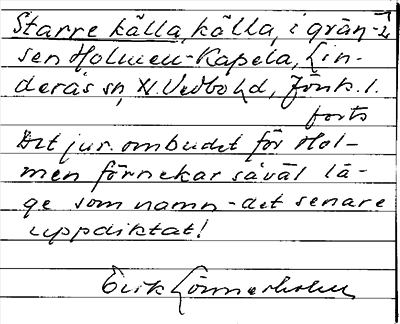 Starre källa, källa, i grän-
sen Holmen-Kapela, Lin-
derås sn, N. Vedbo hd, Jönk. l.
forts
Det jur. ombudet för Hol-
men förnekar såväl lä-
ge som namn - det senare
uppdiktat!
Erik Lönnerholm